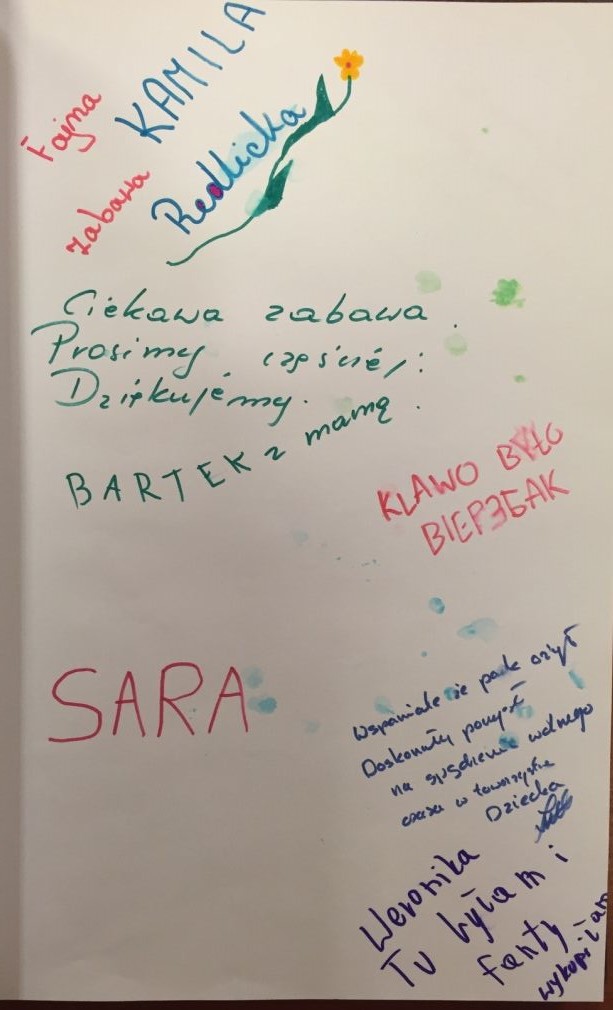 Fajna
zabawa
KAMILA
Redlicka
Ciekawa zabawa.
Prosimy częściej:
Dziękujemy.
BARTEK z mamą.
KLAWO BYŁO
BIEPЗБAK
SARA
Wspaniale że park ożył
Doskonały pomysł
na spędzenie wolnego
czasu w towarzystwie
Dziecka
Weronika
Tu byłam i
fanty
wykupiłam